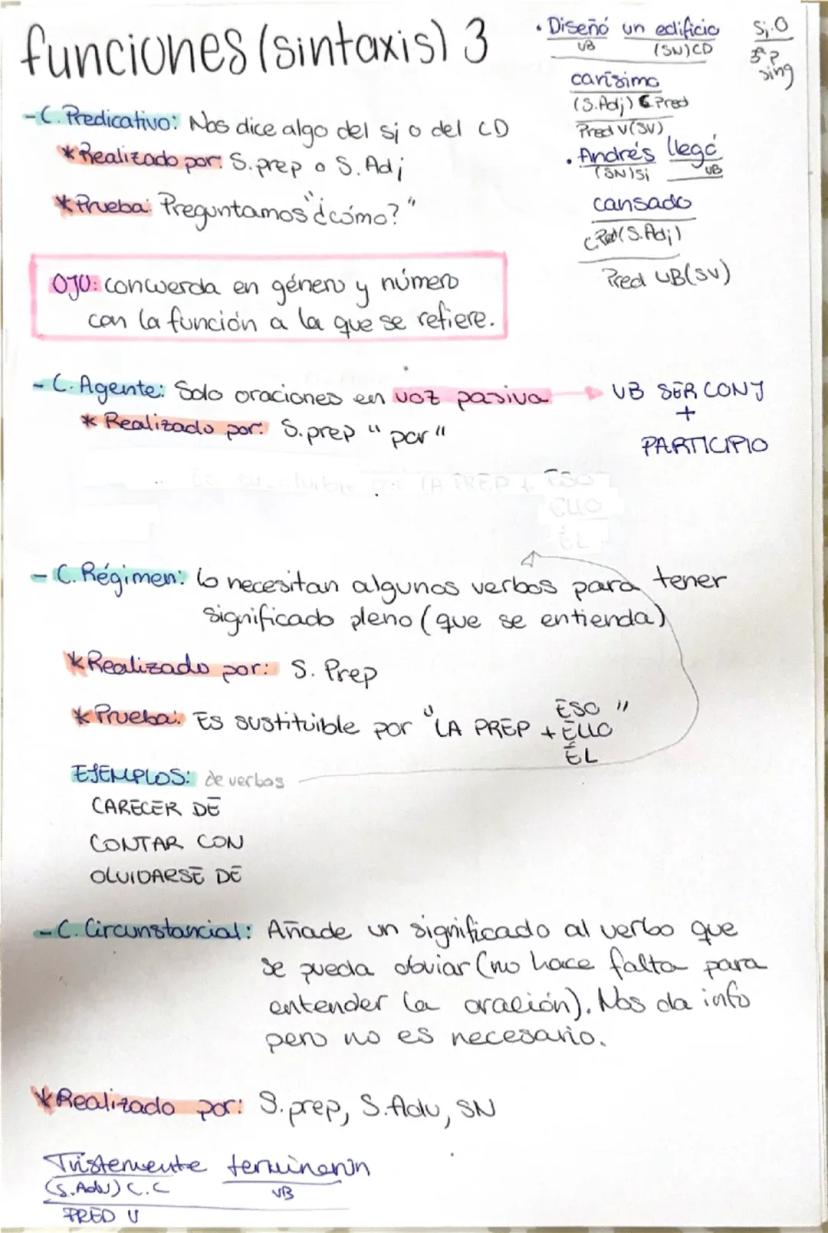 funciones (sintaxis) 3
- C. Predicativo: Nos dice algo del sj o del CD
* Realizado por: S. prep o S. Adj
* Prueba: Preguntamos "¿cómo?"
OJO: concuerda en género y número
con la función a la que se refiere.
· Diseñó un edificio
VB (SN) CD
Sj. O
3ª P
sing
carísimo
(S. Adj) C Pred
Pred V (SV)
· Andrés llegó
(SN) Sj VB
cansado
C. Pred (S. Adj)
Pred VB (SV)
- C. Agente: Solo oraciones en voz pasiva
VB SER CONJ
+
PARTICIPIO
* Realizado por: S. prep "por"
- C. Régimen: lo necesitan algunos verbos para tener
significado pleno (que se entienda)
* Realizado por: S. Prep
* Prueba: Es sustituible por "LA PREP + ESO"
ELLO
ÉL
EJEMPLOS: de verbos
CARECER DE
CONTAR CON
OLVIDARSE DE
- C. Circunstancial: Añade un significado al verbo que
se pueda obviar (no hace falta para
entender la oración). Nos da info
pero no es necesario.
* Realizado por: S. prep, S. Adv, SN
Tristemente terminarón
(S. Adv) C. C VB
PRED V